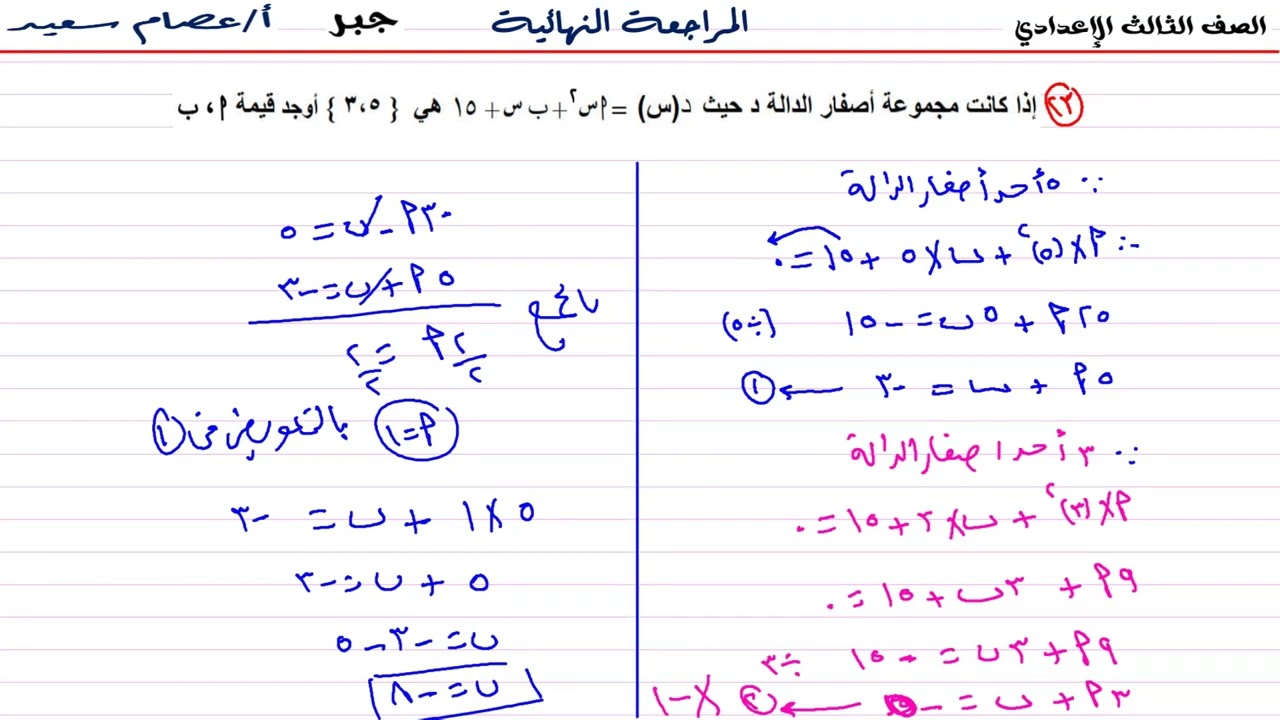 الصف الثالث الإعدادي المراجعة النهائية جبر أ/عصام سعيد
٢٣ إذا كانت مجموعة أصفار الدالة د حيث د(س) = أس٢ + ب س + ١٥ هي { ٣،٥ } أوجد قيمة أ ، ب
∵ ٥ أحد أصفار الدالة
∴ أ×(٥)٢ + ب×٥ + ١٥ = ٠
٢٥أ + ٥ب = -١٥ (÷٥)
٥أ + ب = -٣ ← ①
∵ ٣ أحد أصفار الدالة
أ×(٣)٢ + ب×٣ + ١٥ = ٠
٩أ + ٣ب + ١٥ = ٠
٩أ + ٣ب = -١٥ ÷٣
٣أ + ب = -٥ ← ② ×-١
-٣أ - ب = ٥
٥أ + ب = -٣
بالجمع
٢أ/٢ = ٢/٢
أ=١ بالتعويض فى ①
٥×١ + ب = -٣
٥ + ب = -٣
ب = -٣-٥
ب = -٨